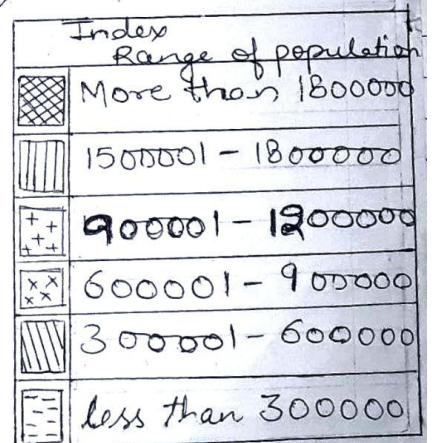 Index
Range of population
More than 1800000
1500001 - 1800000
900001 - 1200000
600001 - 900000
300001 - 600000
less than 300000